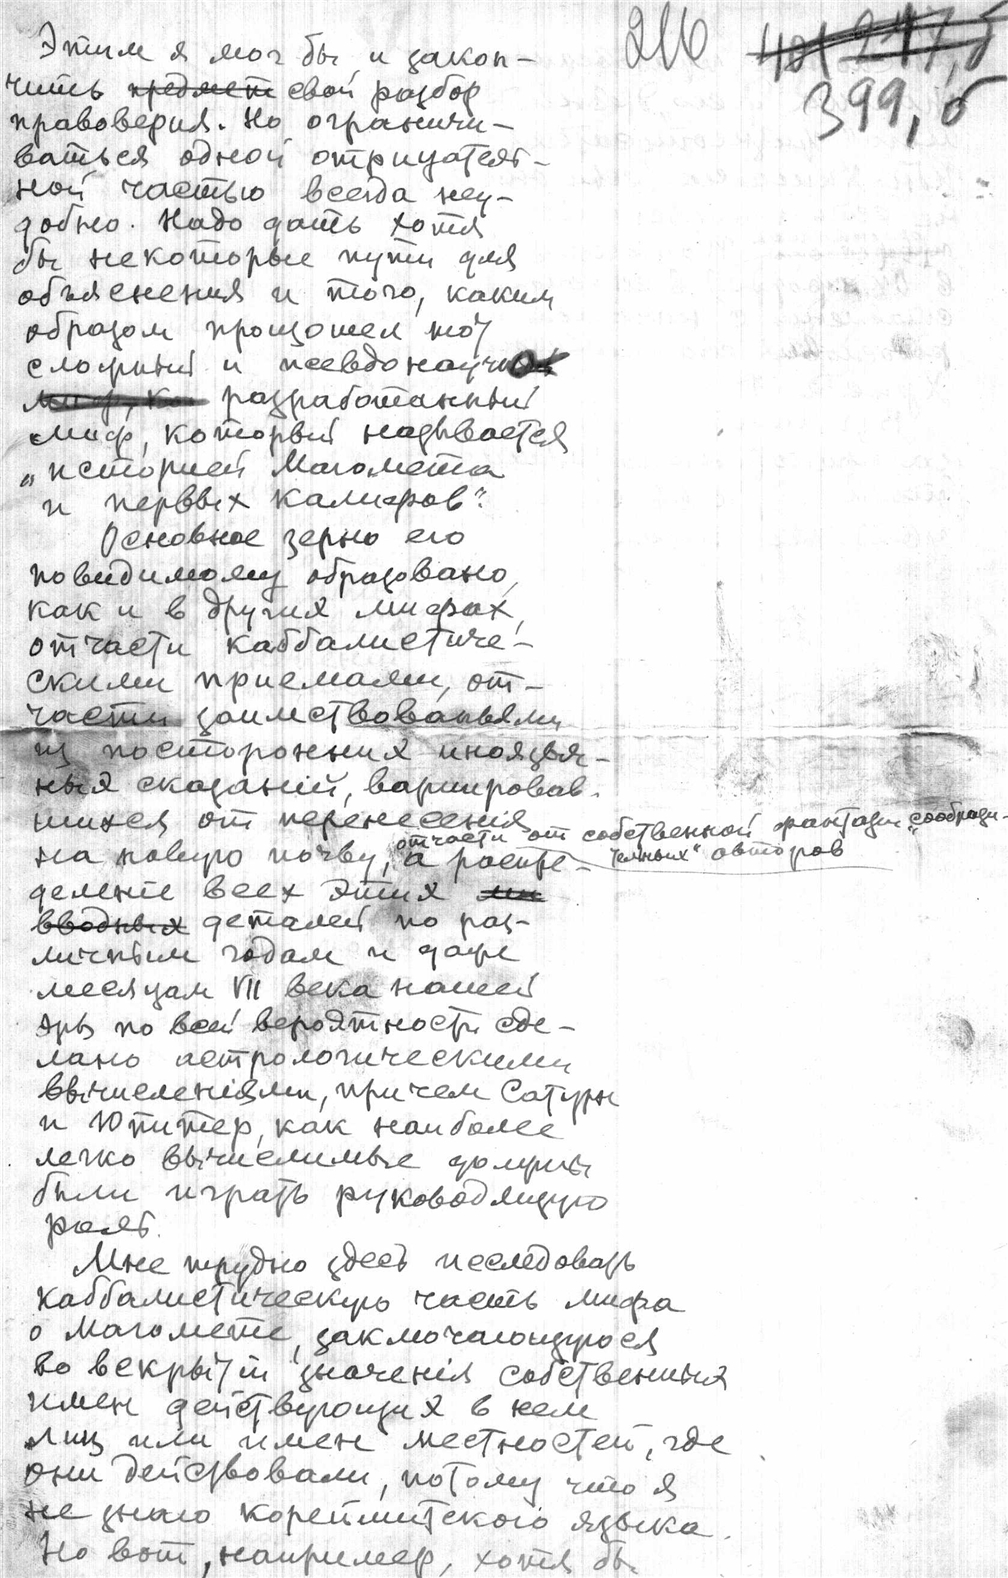 216
399,б
Этим я мог бы и закон-
чить предмет свой разбор
правоверия. Но ограничи-
ваться одной отрицатель-
ной частью всегда неу-
добно. Надо дать хотя
бы некоторые пути для
объяснения и того, каким
образом произошел тот
сложный и псевдонаучно
миф, ко разработанный
миф, который называется
„историей Магомета
и первых калифов“.
Основное зерно его
повидимому образовано,
как и в других мифах,
отчасти каббалистиче-
скими приемами, от-
части заимствованьями
из посторонних иноязыч-
ных сказаний, варьировав-
шихся от перенесения
на новую почву, отчасти от собственной фантазии „сообрази-
тельных“ авторов а распре-
деление всех этих
вводных деталей по раз-
личным годам и даже
месяцам VII века нашей
эры по всей вероятности сде-
лано астрологическими
вычисленіями, причем Сатурн
и Юпитер, как наиболее
легко вычислимые должны
были играть руководящую
роль.
Мне трудно здесь исследовать
каббалистическую часть мифа
о Магомете, заключающуюся
во вскрытіи значенія собственных
имен действующих в нем
лиц или имен местностей, где
они действовали, потому что я
не знаю корейшитского языка.
Но вот, например, хотя бы